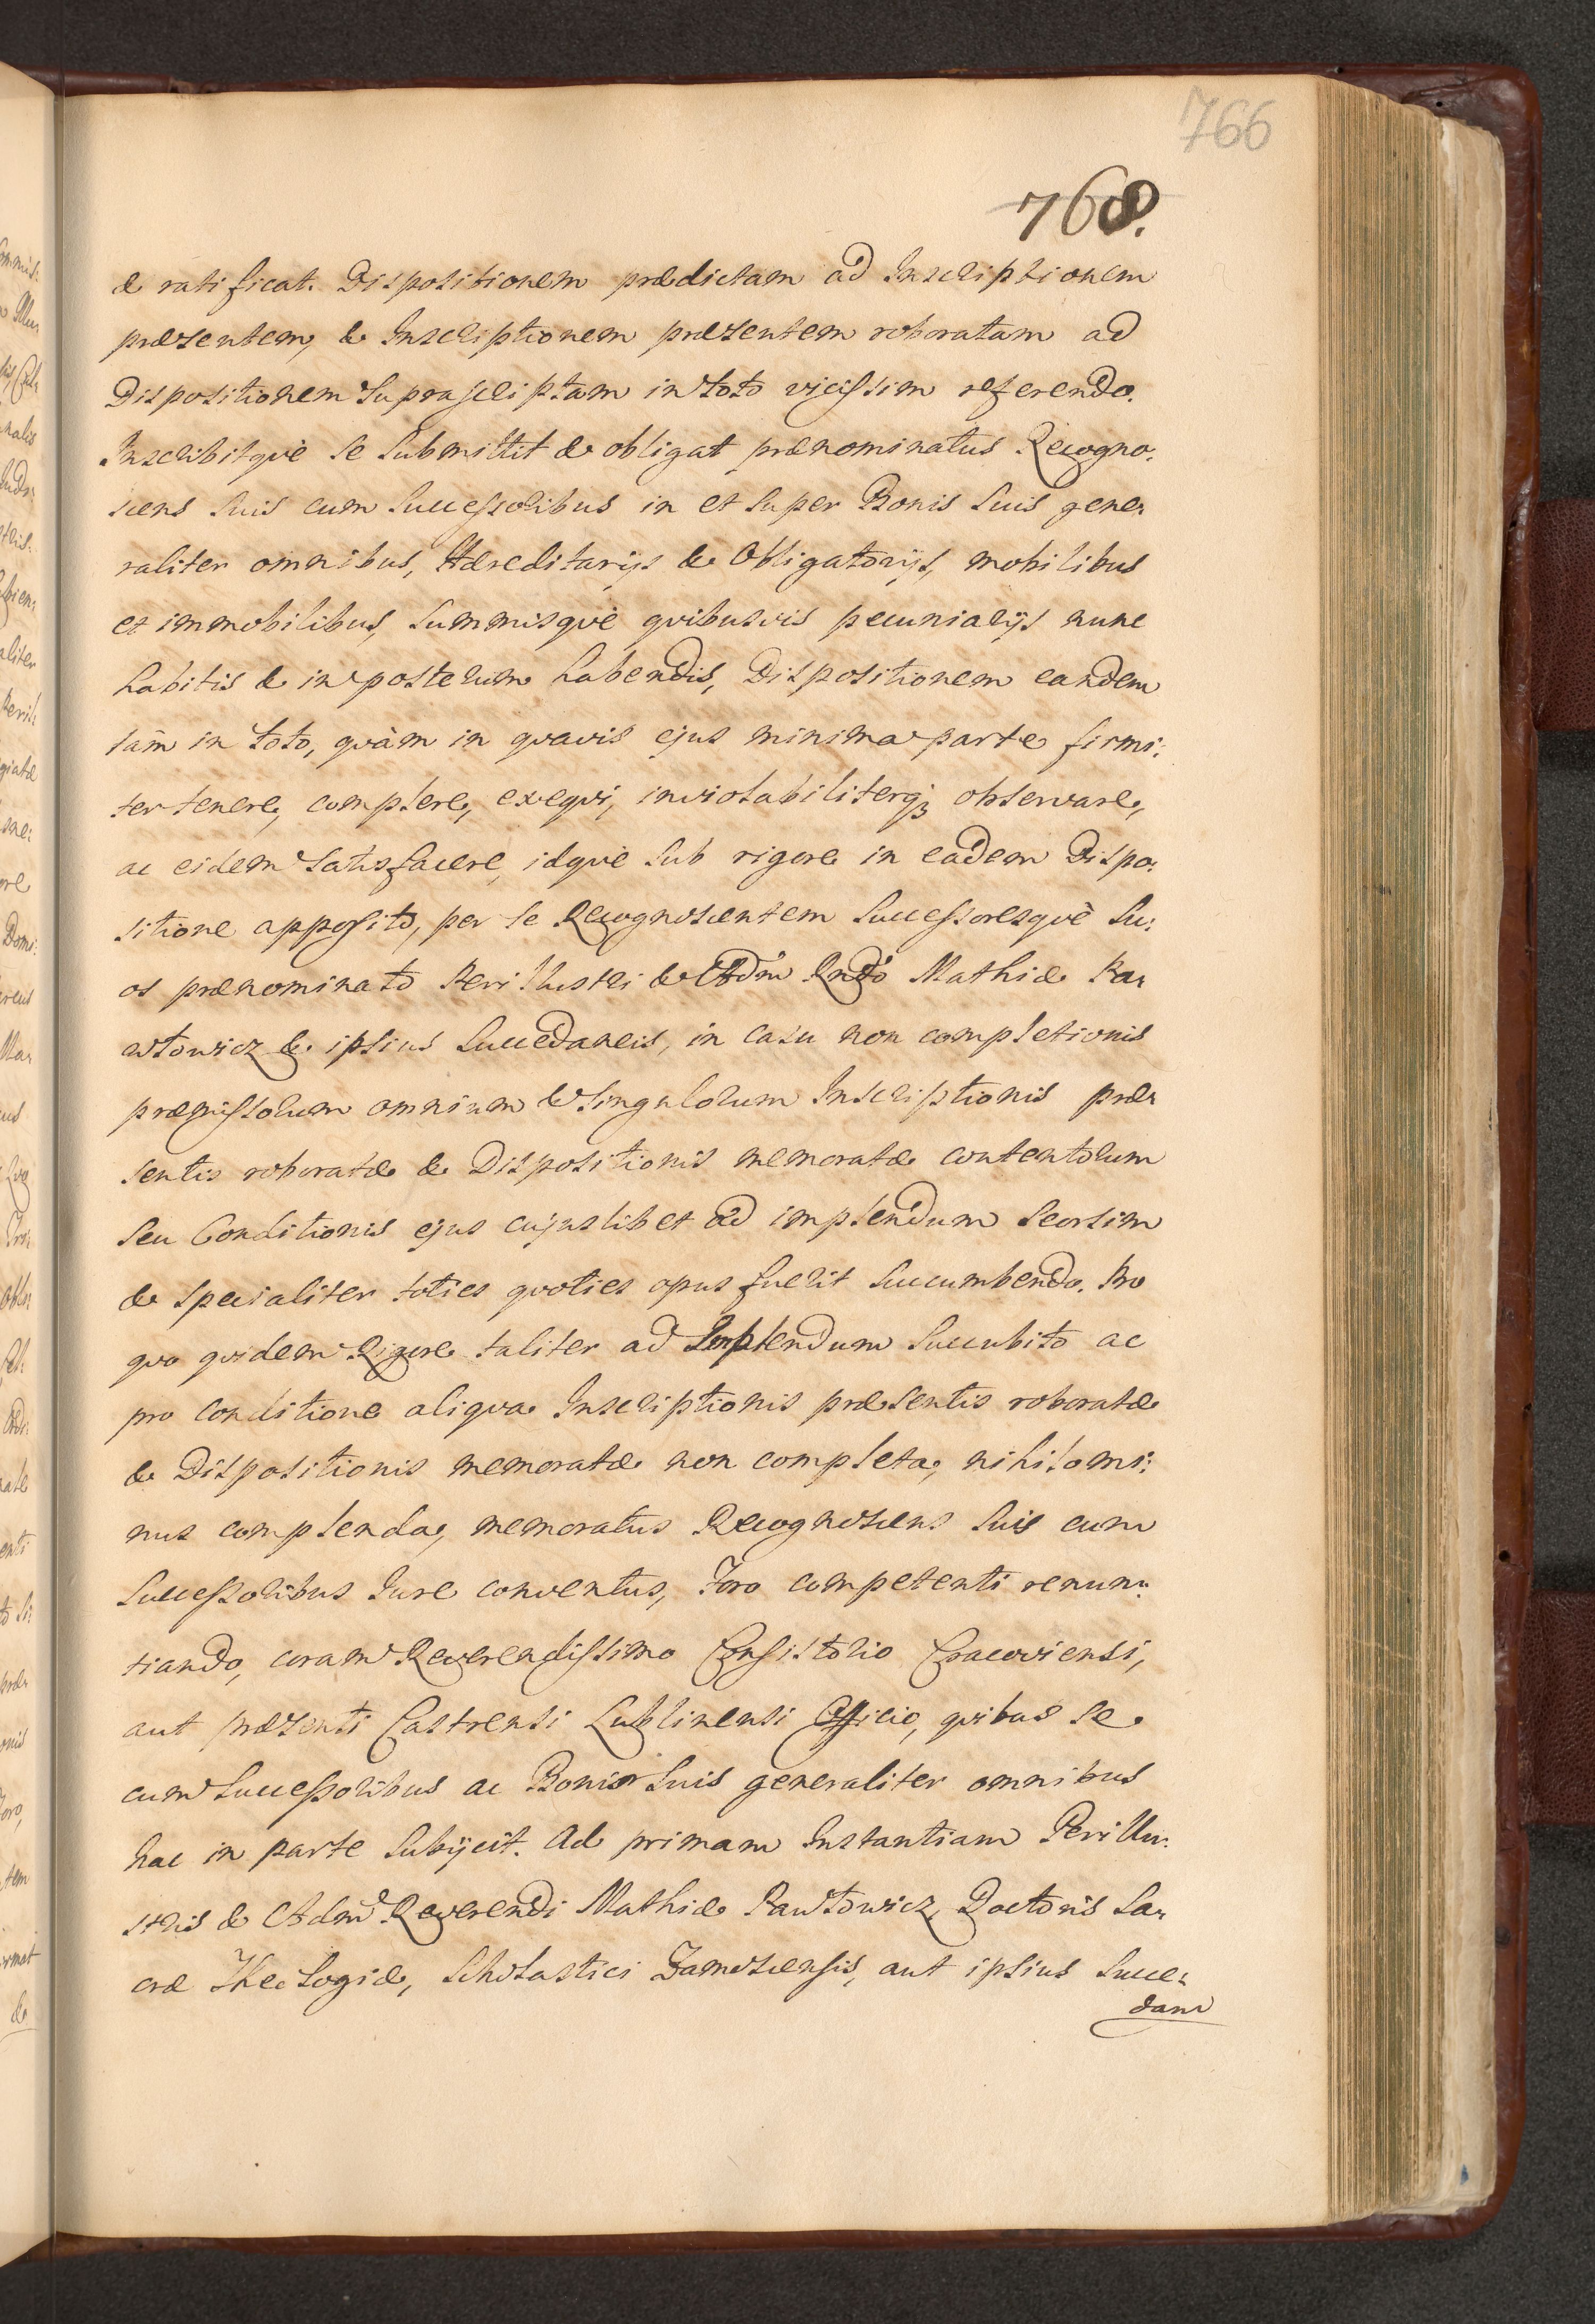 766
768.
& ratificat. Dispositionem prædictam ad Inscriptionem
præsentem, & Inscriptionem præsentem roboratam ad
Dispositionem suprascriptam in toto vicissim referendo.
Inscribitqvè se submittit & obligat prænominatus Recogno:
scens suis cum successoribus in et super Bonis suis gene:
raliter omnibus, Hæreditarijs & Obligatorijs, mobilibus
et immobilibus, summisqvè qvibusvis pecuniarijs nunc
habitis & in posterum habendis, Dispositionem eandem
tàm in toto, qvàm in qvavis ejus minima parte firmi:
ter tenere, complere, exeqvi, inviolabiliterq; observare,
ac eidem satisfacere, idqvè sub rigore in eadem Dispo:
sitione apposito, per se Recognoscentem successoresqvè su:
os prænominato Perillustri & Adm̃ Rndõ Mathiæ Pa:
włowicz & ipsius succedaneis, in casu non completionis
præmissorum omnium & singulorum Inscriptionis præ:
sentis roboratæ & Dispositionis memoratæ contentorum
seu Conditionis ejus cujuslibet ad implendum seorsim
& specialiter toties qvoties opus fuerit succumbendo. Pro
qvo qvidem Rigore taliter ad implendum succubito ac
pro conditione aliqva Inscriptionis præsentis roboratæ
& Dispositionis memoratæ non completa, nihilomi:
nus complenda, memoratus Recognoscens suis cum
successoribus Jure conventus, Foro competenti renun:
tiando, coram Reverendissimo Consistorio Cracoviensi,
aut præsenti Castrensi Lublinensi Officio, qvibus se
cum successoribus ac Bonis suis generaliter omnibus
hac in parte subijcit. Ad primam Instantiam Perillu:
stris & Adm̃ Reverendi Mathiæ Pawłowicz, Doctoris Sa:
cræ Theologiæ, Scholastici Zamoscensis, aut ipsius succe:
dane